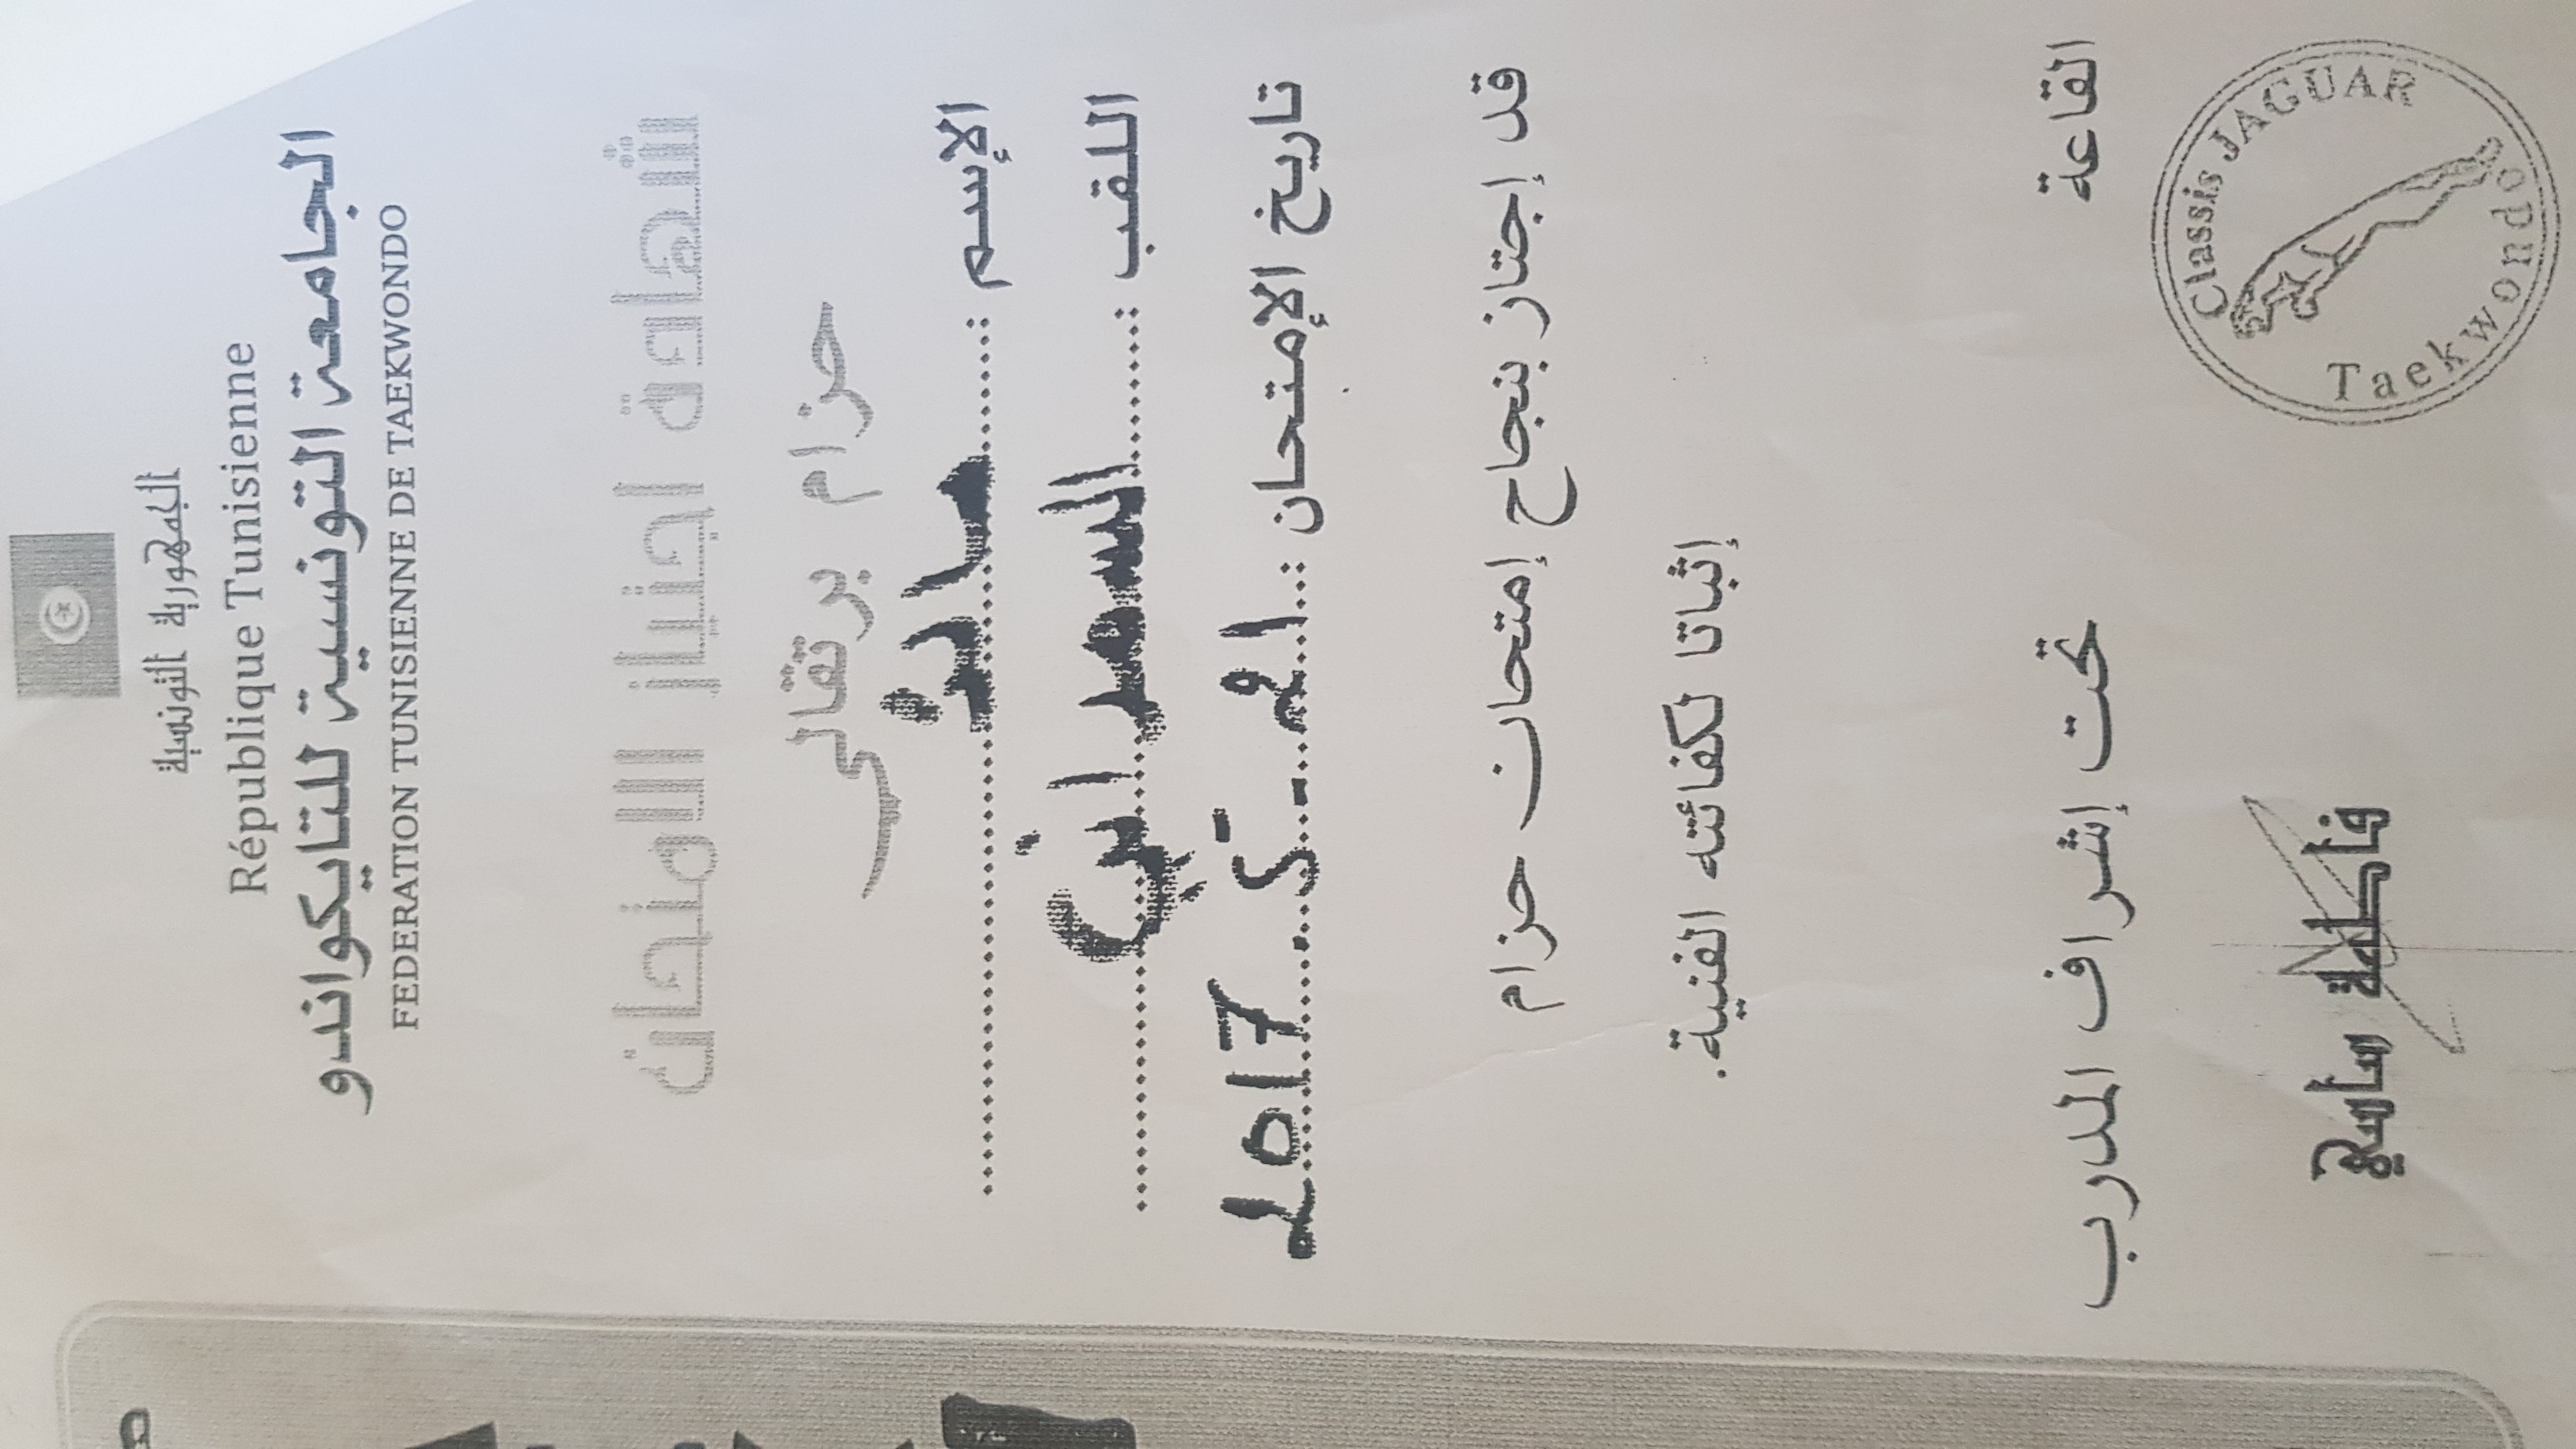 الجمهورية التونسية
République Tunisienne
الجامعة التونسية للتايكواندو
FEDERATION TUNISIENNE DE TAEKWONDO
شهادة اجتياز الامتحان
حزام برتقالي
الإسم :
اللقب :
تاريخ الإمتحان :
قد إجتاز بنجاح إمتحان حزام
إثباتا لكفائته الفنية.
القاعة تحت إشراف المدرب
Classis JAGUAR
Taekwondo